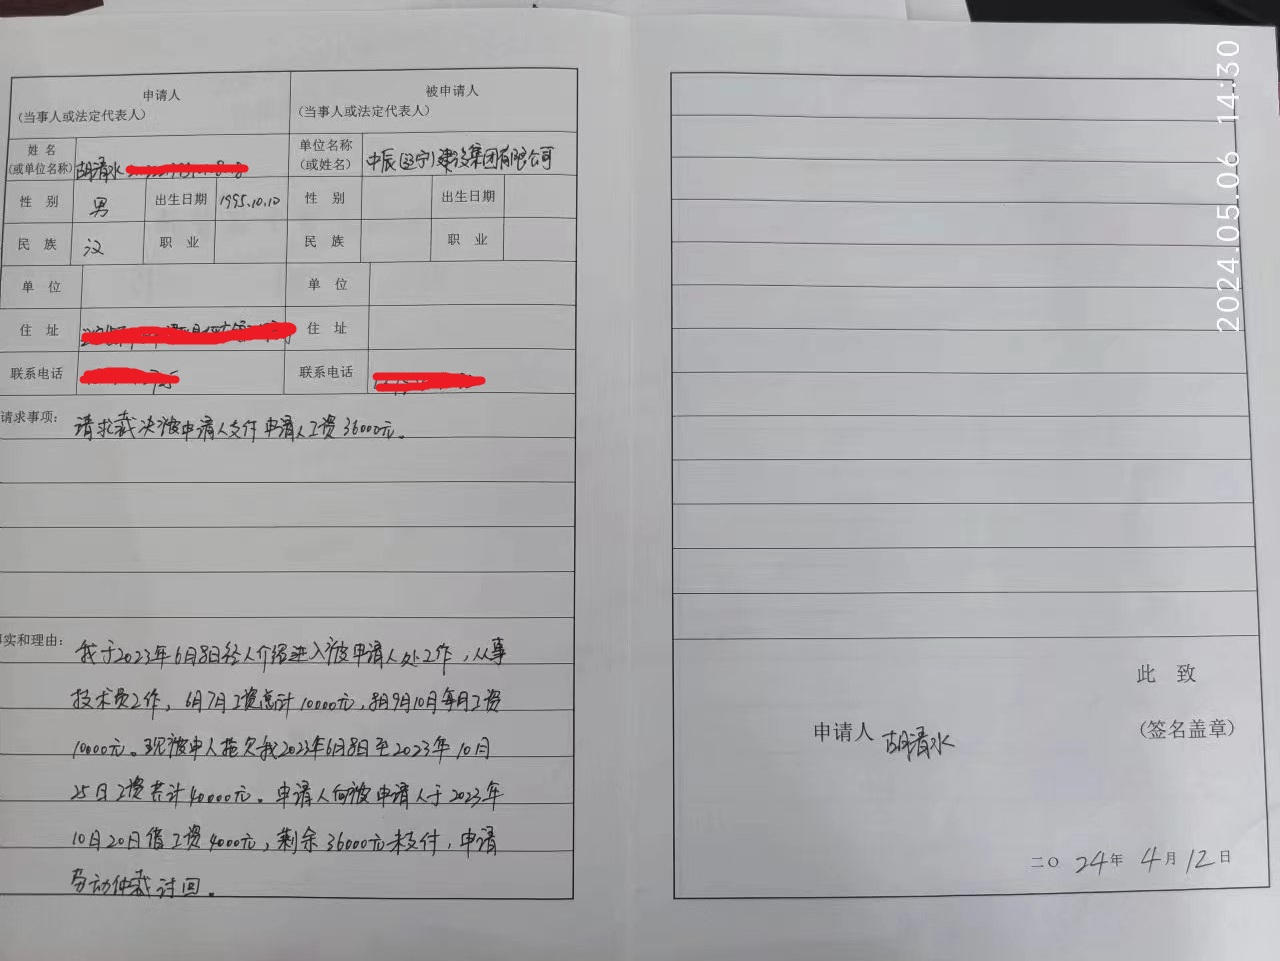 申请人
(当事人或法定代表人)
被申请人
(当事人或法定代表人)
姓 名
(或单位名称)
胡清水
单位名称
(或姓名)
中辰(辽宁)建设集团有限公司
性 别
男
出生日期
1995.10.10
性 别
出生日期
民 族
汉
职 业
民 族
职 业
单 位
单 位
住 址
住 址
联系电话
联系电话
请求事项:
请求裁决被申请人支付申请人工资36000元。
实和理由:
我于2023年6月8日经人介绍进入被申请人处工作,从事
技术员工作,6月7月工资总计10000元,8月9月10月每月工资
10000元。现被申人拖欠我2023年6月8日至2023年10月
25日工资共计40000元。申请人向被申请人于2023年
10月20日借工资4000元,剩余36000元未支付,申请
劳动仲裁讨回。
此 致
申请人 胡清水 (签名盖章)
二〇24年4月12日
2024.05.06 14:30